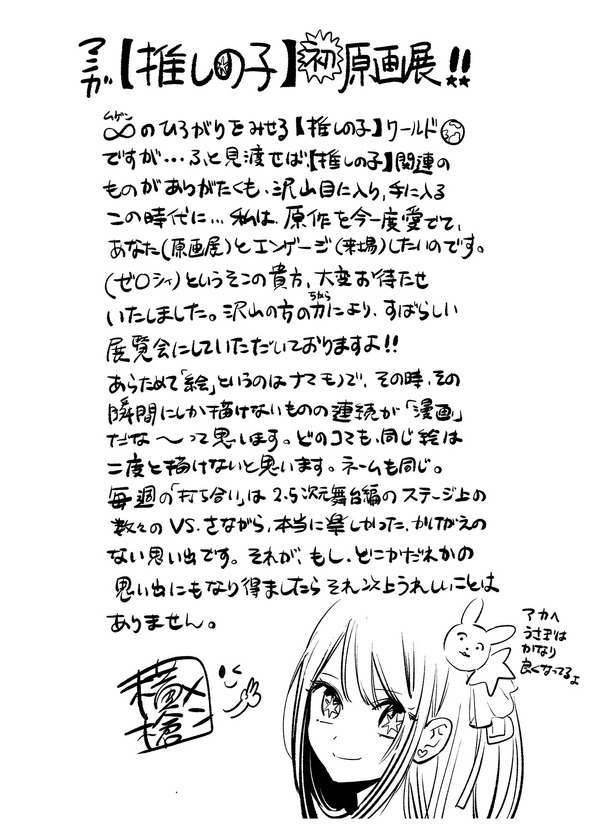 マンガ【推しの子】初原画展!!
ムゲン
∞のひろがりをみせる【推しの子】ワールド
ですが…ふと見渡せば、【推しの子】関連の
ものがありがたくも、沢山目に入り、手に入る
この時代に…私は、原作を今一度愛でて、
あなた(原画展)とエンゲージ(来場)したいのです。
(ゼロシィ)というそこの貴方、大変お待たせ
ちから
いたしました。沢山の方の力により、すばらしい
展覧会にしていただいておりますよ!!
あらためて「絵」というのはナマモノで、その時、その
瞬間にしか描けないものの連続が「漫画」
だな〜って思います。どのコマも、同じ絵は
二度と描けないと思います。ネームも同じ。
毎週の「打ち合い」は2.5次元舞台編のステージ上の
数々のVS.さながら、本当に楽しかった、かけがえの
ない思い出です。それが、もし、どこかだれかの
思い出にもなり得ましたらそれ以上うれしいことは
ありません。
アカへ
うさぎは
かなり
良くなってるよ
横槍
メンゴ